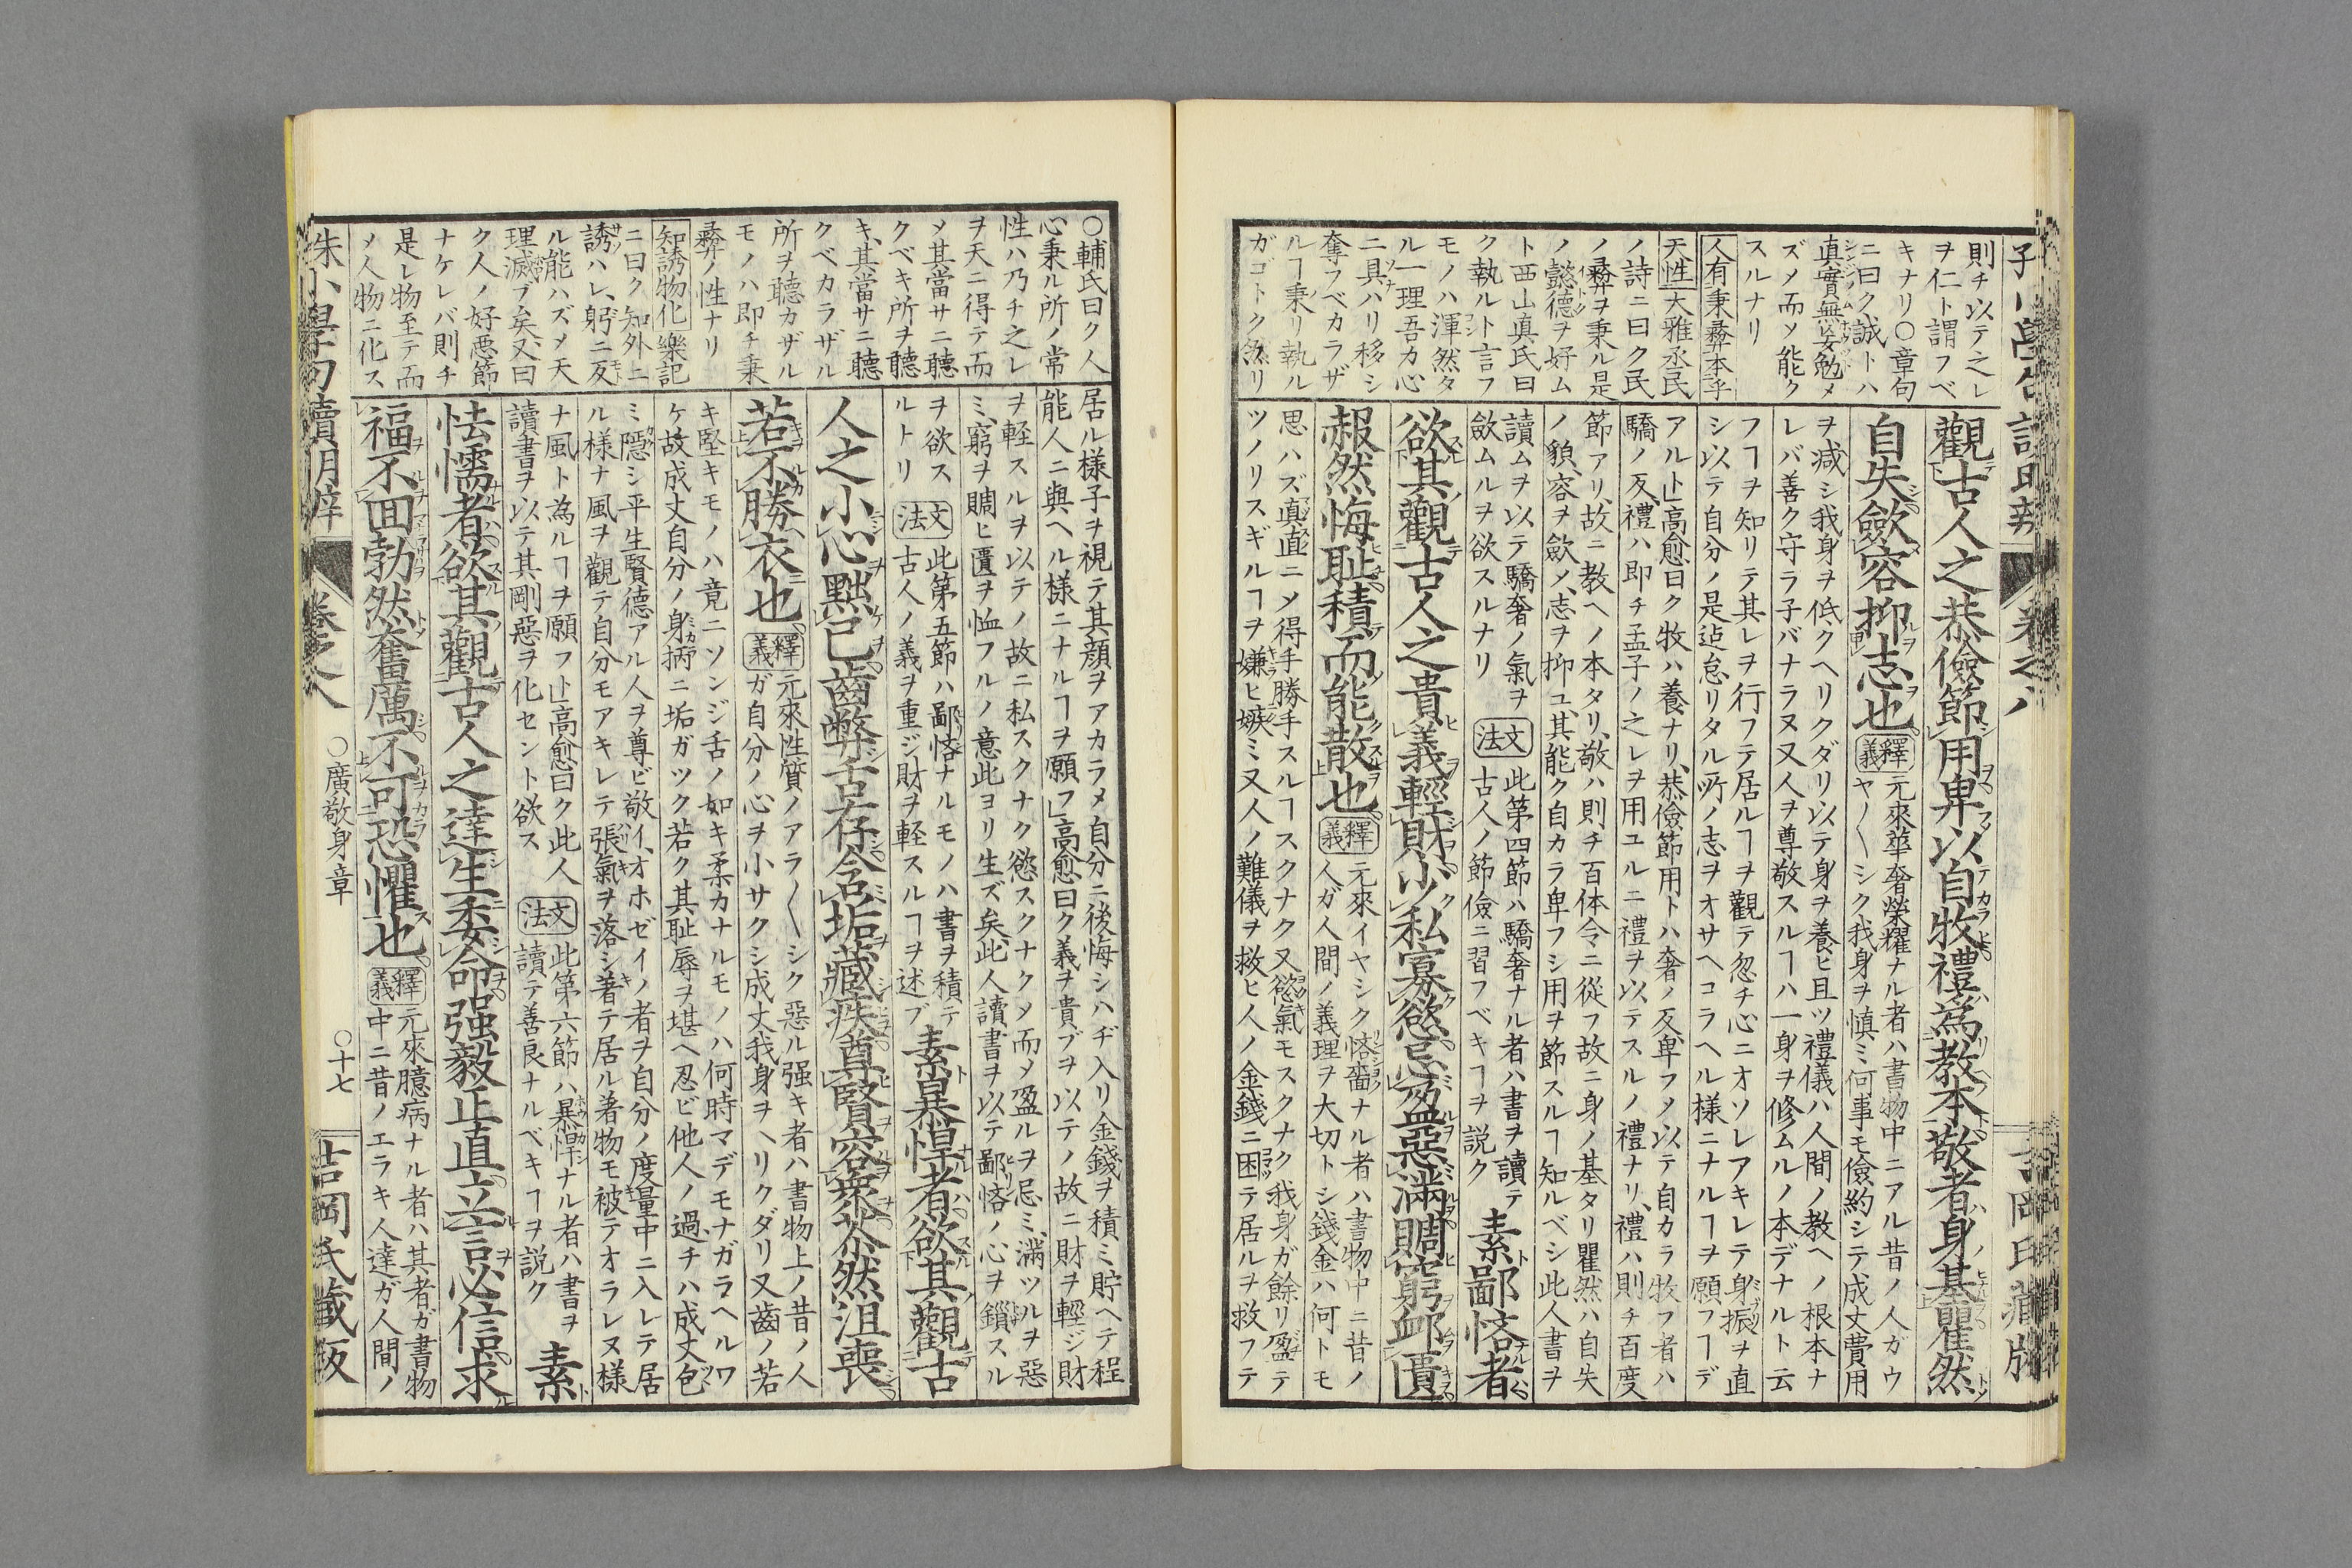 則チ以テ之レ
ヲ仁ト謂フベ
キナリ〇章句
ニ曰ク誠トハ
真實無妄勉メ
ズメ而ソ能ク
スルナリ
人有秉彝本乎
天性 大雅丞民
ノ詩ニ曰ク民
ノ彝ヲ秉ル是
ノ懿德ヲ好ム
ト西山真氏曰
ク執ルト言フ
モノハ渾然タ
ル一理吾カ心
ニ具ハリ移シ
奪フベカラザ
ルヿ秉リ執ル
ガコトク然リ
觀古人之恭儉節用卑以自牧禮為教本敬者身基瞿然
自失斂容抑志也 釋義 元來華奢榮耀ナル者ハ書物中ニアル昔ノ人ガウ
ヤ〱シク我身ヲ慎ミ何事モ儉約シテ成丈費用
ヲ减シ我身ヲ低クヘリクダリ以テ身ヲ養ヒ且ツ禮儀ハ人間ノ教ヘノ根本ナ
レバ善ク守ラ子バナラヌ又人ヲ尊敬スルヿハ一身ヲ修ムルノ本デナルト云
フヿヲ知リテ其レヲ行フテ居ルヿヲ觀テ忽チ心ニオソレアキレテ身振ヲ直
シ以テ自分ノ是迠怠リタル所ノ志ヲオサヘコラヘル様ニナルヿヲ願フヿデ
アルト」高愈曰ク牧ハ養ナリ、恭儉節用トハ奢ノ反、卑フメ以テ自カラ牧フ者ハ
驕ノ反、禮ハ即チ孟子ノ之レヲ用ユルニ禮ヲ以テスルノ禮ナリ、禮ハ則チ百度
節アリ、故ニ教ヘノ本タリ、敬ハ則チ百体令ニ從フ故ニ身ノ基タリ瞿然ハ自失
ノ貌、容ヲ斂メ、志ヲ抑ユ、其能ク自カラ卑フシ用ヲ節スルヿ知ルベシ此人書ヲ
讀ムヲ以テ驕奢ノ氣ヲ 文法 此第四節ハ驕奢ナル者ハ書ヲ讀テ
斂ムルヲ欲スルナリ 古人ノ節儉ニ習フベキヿヲ説ク 素鄙悋者
欲其觀古人之貴義輕財少私寡慾忌盈惡滿賙窮卹匱
赧然悔耻積而能散也 釋義 元來イヤシク悋嗇ナル者ハ書物中ニ昔ノ
人ガ人間ノ義理ヲ大切トシ錢金ハ何トモ
思ハズ真直ニメ得手勝手スルヿスクナク又慾氣モスクナク我身ガ餘リ盈テ
ツノリスギルヿヲ嫌ヒ嫉ミ又人ノ難儀ヲ救ヒ人ノ金錢ニ困テ居ルヲ救フテ
〇輔氏曰ク人
心秉ル所ノ常
性ハ乃チ之レ
ヲ天ニ得テ而
メ其當サニ聽
クベキ所ヲ聽
キ、其當サニ聽
クベカラザル
所ヲ聽カザル
モノハ即チ秉
彝ノ性ナリ
知誘物化 樂記
ニ曰ク知外ニ
誘ハレ、躬ニ反
ル能ハズメ天
理滅ブ矣又曰
ク人ノ好惡節
ナケレバ則チ
是レ物至テ而
メ人物ニ化ス
居ル様子ヲ視テ其顔ヲアカラメ自分ニ後悔シハヂ入リ金錢ヲ積ミ貯ヘテ程
能人ニ與ヘル様ニナルヿヲ願フ」高愈曰ク義ヲ貴ブヲ以テノ故ニ財ヲ輕ジ財
ヲ軽スルヲ以テノ故ニ私スクナク慾スクナクメ而メ盈ルヲ忌ミ、滿ツルヲ惡
ミ、窮ヲ賙ヒ匱ヲ恤フルノ意此ヨリ生ズ矣此人讀書ヲ以テ鄙悋ノ心ヲ鎖スル
ヲ欲ス 文法 此第五節ハ鄙悋ナルモノハ書ヲ積テ
ルトリ 古人ノ義ヲ重ジ財ヲ軽スルヿヲ述ブ 素暴悍者欲其觀古
人之小心黜己齒弊舌存含垢藏疾尊賢容衆苶然沮喪
若不勝衣也 釋義 元來性質ノアラ〱シク惡ル强キ者ハ書物上ノ昔ノ人
ガ自分ノ心ヲ小サクシ成丈我身ヲヘリクダリ又齒ノ若
キ堅キモノハ竟ニソンジ舌ノ如キ柔カナルモノハ何時マデモナガラヘルワ
ケ故成丈自分ノ身柄ニ垢ガツク若ク其耻辱ヲ堪ヘ忍ビ他人ノ過チハ成丈包
ミ隱シ平生賢德アル人ヲ尊ビ敬イ、オホゼイノ者ヲ自分ノ度量中ニ入レテ居
ル様ナ風ヲ觀テ自分モアキレテ張氣ヲ落シ著テ居ル著物モ被テオラレヌ様
ナ風ト為ルヿヲ願フト」高愈曰ク此人 文法 此第六節ハ暴悍ナル者ハ書ヲ
讀書ヲ以テ其剛惡ヲ化セント欲ス 讀テ善良ナルベキヿヲ説ク 素
怯懦者欲其觀古人之達生委命强毅正直立言必信求
福不回勃然奮厲不可恐懼也 釋義 元來臆病ナル者ハ其者ガ書物
中ニ昔ノエラキ人達ガ人間ノ
卷之八
〇廣敬身章
〇十七
吉岡氏藏版